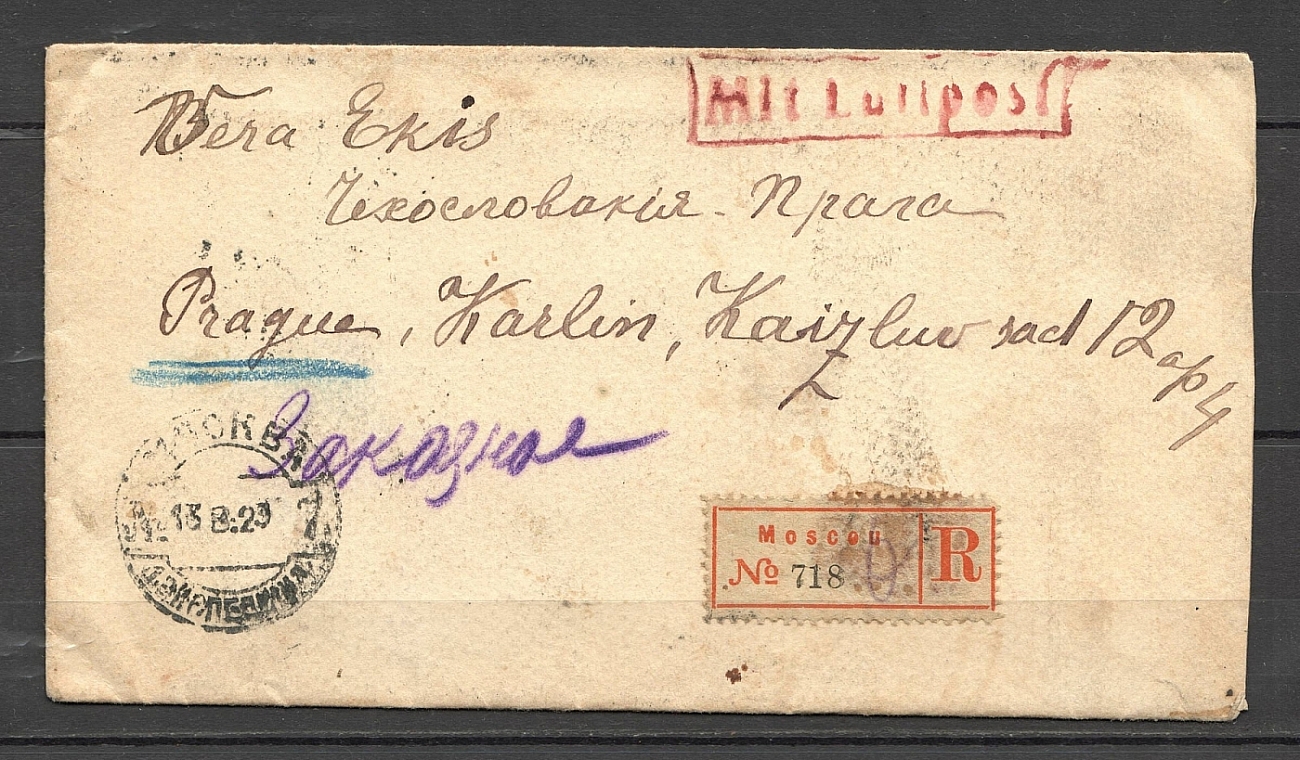 Mit Luftpost
Вега Екis
Чехословакія - Прага
Prague, Karlin, Kaizluv sad 12
ap 4
Заказное
МОСКВА
13 8.23
Moscou
№ 718
R